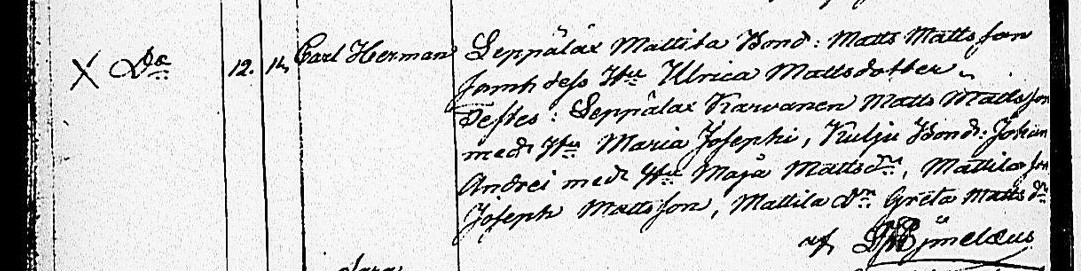 X Do 12. 14. Carl Herman Leppälax Mattila Bond: Matts Matts son
samt dess Hu Ulrica Mattsdotter.
Testes: Leppälax Karvanen Matts Mattsson
med Hu Maria Josephi, Kulju Bond: Johan
Andrei med Hu Maja Mattsdr, Mattila son
Joseph Mattsson, Mattila Dn Greta Matts dr
af
Clara